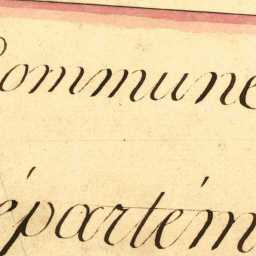 Commune
départem